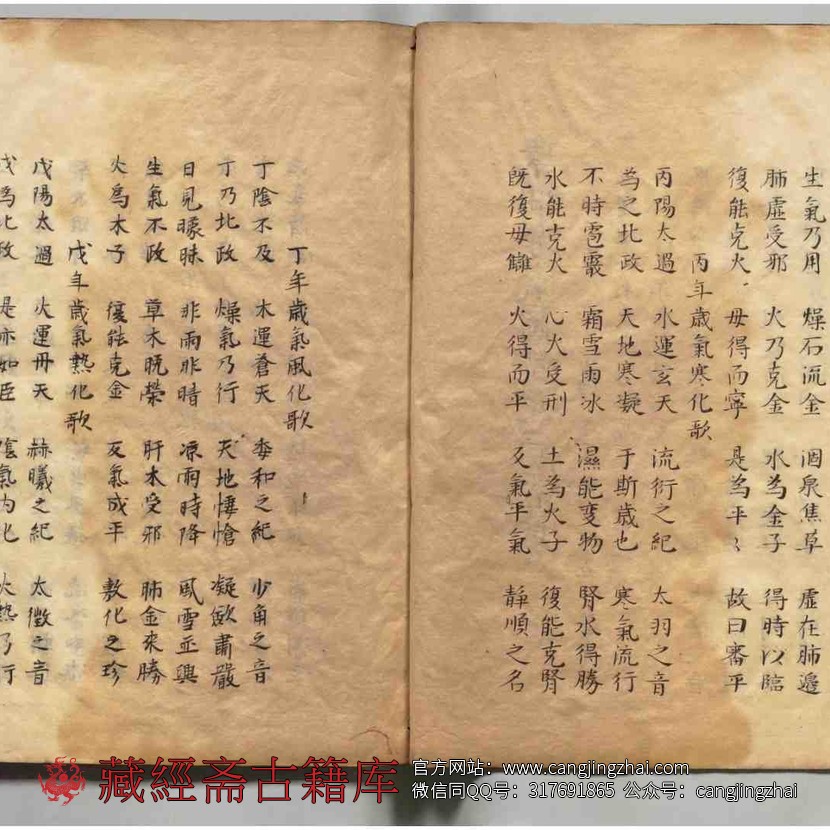 生氣乃用 燥石流金 涸泉焦草 虛在肺邊
肺虛受邪 火乃克金 水為金子 得時以臨
復能克火 毋得而寧 是為平〻 故曰審平
丙年歲氣寒化歌
丙陽太過 水運玄天 流衍之紀 太羽之音
為之北政 天地寒凝 于斯歲也 寒氣流行
不時雹霰 霜雪雨冰 濕能變物 腎水得勝
水能克火 心火受刑 土為火子 復能克腎
旣復母讎 火得而平 炁氣平氣 靜順之名
丁年歲氣風化歌
丁陰不及 木運蒼天 委和之紀 少角之音
丁乃北政 燥氣乃行 天地悽愴 凝歛肅嚴
日見曚昧 非雨非暗 凉雨時降 風雪並興
生氣不政 草木晚榮 肝木受邪 肺金來勝
火為木子 復能克金 炁氣成平 敷化之珍
戊年歲氣熱化歌
戊陽太過 火運丹天 赫曦之紀 太徵之音
戊為北政 是亦如臣 陰氣內化 火熱乃行
藏經斋古籍库
官方网站：www.cangjingzhai.com
微信同QQ号：317691865 公众号：cangjingzhai